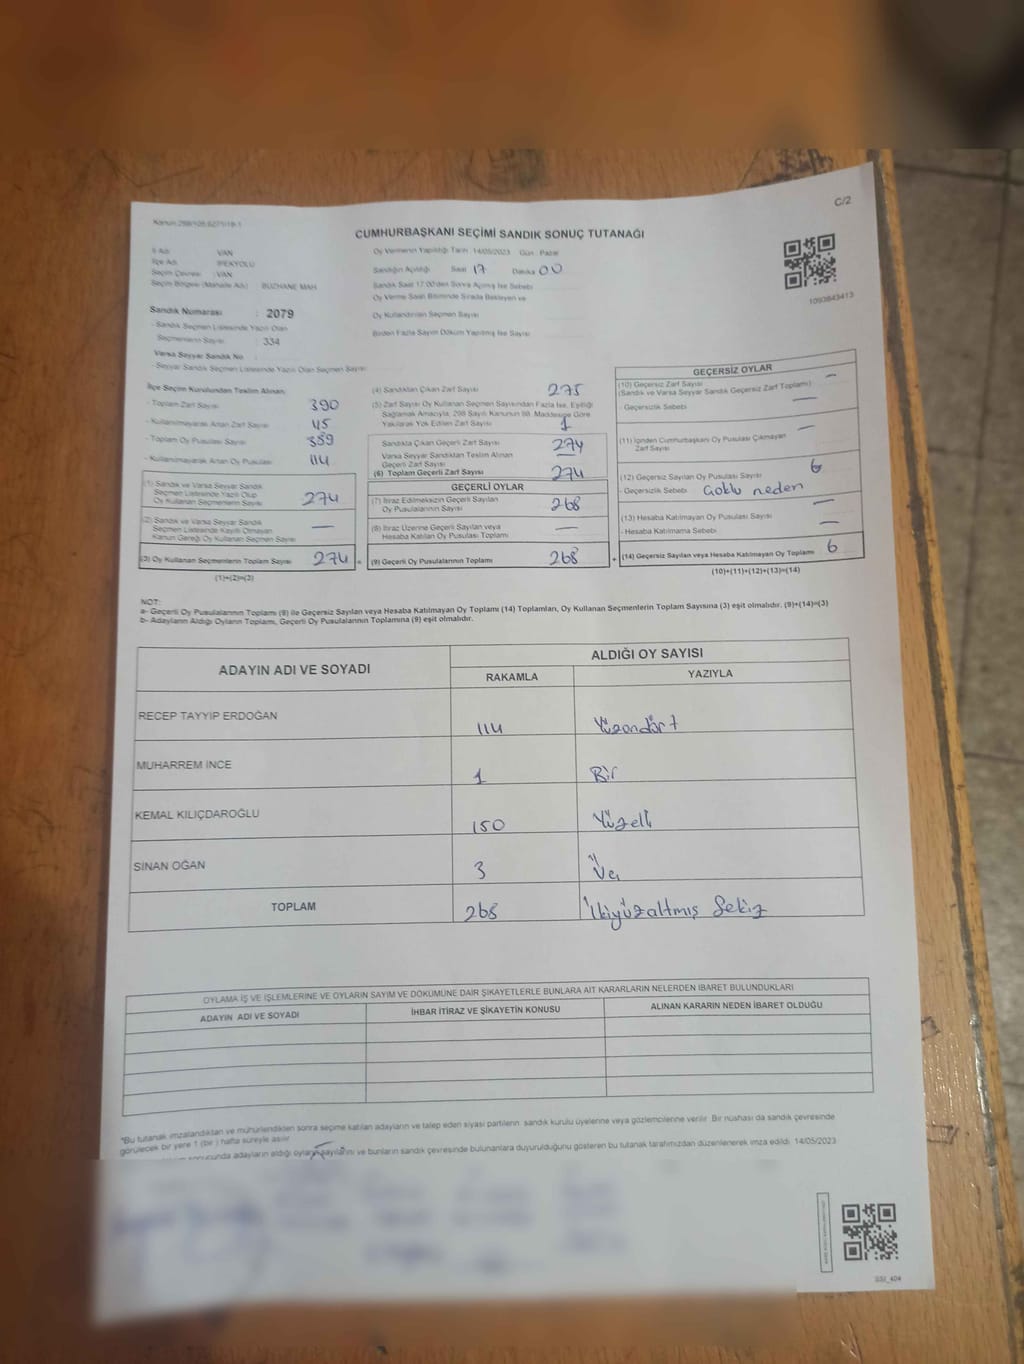 C/2
Kanun:298/105,6271/19-1
CUMHURBAŞKANI SEÇİMİ SANDIK SONUÇ TUTANAĞI
İl Adı : VAN
İlçe Adı : İPEKYOLU
Seçim Çevresi : VAN
Seçim Bölgesi (Mahalle Adı) : BUZHANE MAH.
Oy Vermenin Yapıldığı Tarih : 14/05/2023 Gün : Pazar
Sandığın Açıldığı Saat 17 Dakika 00
Sandık Saat 17.00'den Sonra Açılmış İse Sebebi
Oy Verme Saati Bitiminde Sırada Bekleyen ve
Oy Kullandırılan Seçmen Sayısı
Birden Fazla Sayım Döküm Yapılmış İse Sayısı
1093843413
Sandık Numarası : 2079
- Sandık Seçmen Listesinde Yazılı Olan
Seçmenlerin Sayısı : 334
Varsa Seyyar Sandık No
- Seyyar Sandık Seçmen Listesinde Yazılı Olan Seçmen Sayısı
İlçe Seçim Kurulundan Teslim Alınan:
- Toplam Zarf Sayısı 390
- Kullanılmayarak Artan Zarf Sayısı 115
- Toplam Oy Pusulası Sayısı 389
- Kullanılmayarak Artan Oy Pusulası 114
(1) Sandık ve Varsa Seyyar Sandık
Seçmen Listesinde Yazılı Olup
Oy Kullanan Seçmenlerin Sayısı 274
(2) Sandık ve Varsa Seyyar Sandık
Seçmen Listesinde Kayıtlı Olmayan
Kanun Gereği Oy Kullanan Seçmen Sayısı —
(3) Oy Kullanan Seçmenlerin Toplam Sayısı 274
(1)+(2)=(3)
(4) Sandıktan Çıkan Zarf Sayısı 275
(5) Zarf Sayısı Oy Kullanan Seçmen Sayısından Fazla İse, Eşitliği
Sağlamak Amacıyla, 298 Sayılı Kanunun 98. Maddesine Göre
Yakılarak Yok Edilen Zarf Sayısı 1
Sandıkta Çıkan Geçerli Zarf Sayısı 274
Varsa Seyyar Sandıktan Teslim Alınan
Geçerli Zarf Sayısı —
(6) Toplam Geçerli Zarf Sayısı 274
GEÇERLİ OYLAR
(7) İtiraz Edilmeksizin Geçerli Sayılan
Oy Pusulalarının Sayısı 268
(8) İtiraz Üzerine Geçerli Sayılan veya
Hesaba Katılan Oy Pusulası Toplamı —
(9) Geçerli Oy Pusulalarının Toplamı 268
GEÇERSİZ OYLAR
(10) Geçersiz Zarf Sayısı —
(Sandık ve Varsa Seyyar Sandık Geçersiz Zarf Toplamı)
- Geçersizlik Sebebi —
(11) İçinden Cumhurbaşkanı Oy Pusulası Çıkmayan
Zarf Sayısı —
(12) Geçersiz Sayılan Oy Pusulası Sayısı 6
- Geçersizlik Sebebi Çoklu neden
(13) Hesaba Katılmayan Oy Pusulası Sayısı —
- Hesaba Katılmama Sebebi —
(14) Geçersiz Sayılan veya Hesaba Katılmayan Oy Toplamı 6
(10)+(11)+(12)+(13)=(14)
NOT:
a- Geçerli Oy Pusulalarının Toplamı (9) ile Geçersiz Sayılan veya Hesaba Katılmayan Oy Toplamı (14) Toplamları, Oy Kullanan Seçmenlerin Toplam Sayısına (3) eşit olmalıdır. (9)+(14)=(3)
b- Adayların Aldığı Oyların Toplamı, Geçerli Oy Pusulalarının Toplamına (9) eşit olmalıdır.
ADAYIN ADI VE SOYADI ALDIĞI OY SAYISI
RAKAMLA YAZIYLA
RECEP TAYYİP ERDOĞAN 114 Yüzondört
MUHARREM İNCE 1 Bir
KEMAL KILIÇDAROĞLU 150 Yüzelli
SİNAN OĞAN 3 Üç
TOPLAM 268 İkiyüzaltmış Sekiz
OYLAMA İŞ VE İŞLEMLERİNE VE OYLARIN SAYIM VE DÖKÜMÜNE DAİR ŞİKAYETLERLE BUNLARA AİT KARARLARIN NELERDEN İBARET BULUNDUKLARI
ADAYIN ADI VE SOYADI İHBAR İTİRAZ VE ŞİKAYETİN KONUSU ALINAN KARARIN NEDEN İBARET OLDUĞU
*Bu tutanak imzalandıktan ve mühürlendikten sonra seçime katılan adayların ve talep eden siyasi partilerin sandık kurulu üyelerine veya gözlemcilerine verilir. Bir nüshası da sandık çevresinde
görülecek bir yere 1 (bir) hafta süreyle asılır.
sonucunda adayların aldığı oyların sayılarını ve bunların sandık çevresinde bulunanlara duyurulduğunu gösteren bu tutanak tarafımızdan düzenlenerek imza edildi. 14/05/2023